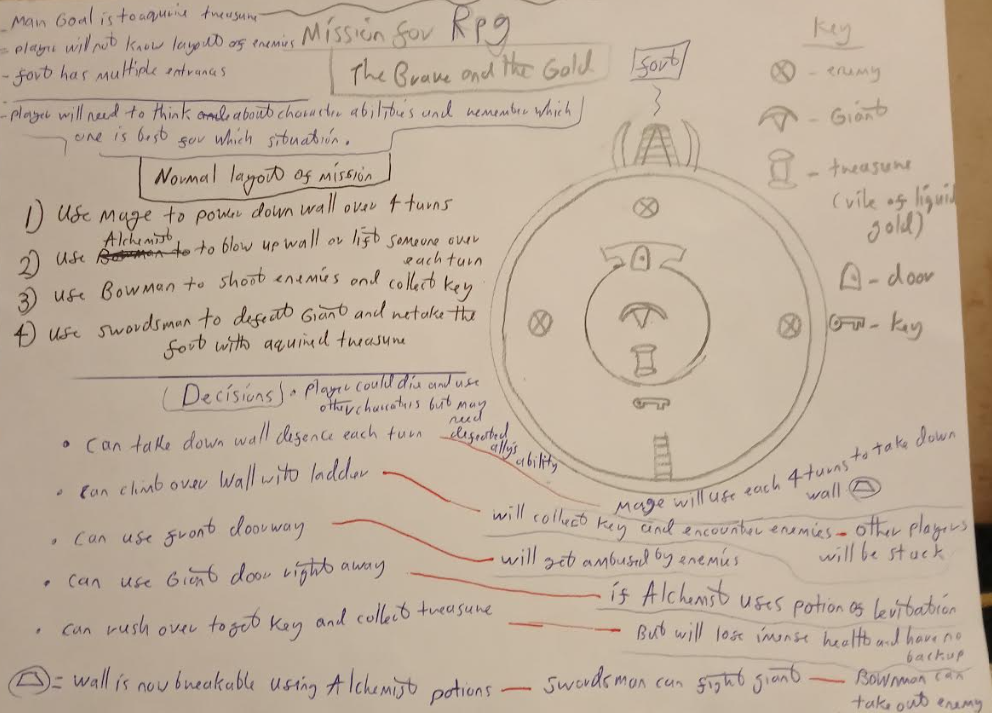 - Main Goal is to aquire treasure
- player will not know layout of enemies
- fort has multiple entrances
- player will need to think about character abilities and remember which
one is best for which situation.
Mission for Rpg
The Brave and the Gold
fort
Key
- enemy
- Giant
- treasure
(vile of liquid
gold)
- door
- key
Normal layout of mission
1) Use Mage to power down wall over 4 turns
2) Use Alchemist to blow up wall or lift someone over
each turn
3) Use Bowman to shoot enemies and collect key
4) Use swordsman to defeat Giant and retake the
fort with aquired treasure
(Decisions) • player could die and use
other characters but may
need
defeated
ally's
ability
• can take down wall defence each turn
Mage will use each 4 turns to take down
wall
• can climb over Wall with ladder
will collect key and encounter enemies - other players
will be stuck
• can use front doorway
- will get ambused by enemies
• can use Giant door right away
if Alchemist uses potion of levitation
• can rush over to get key and collect treasure
But will lose imense health and have no
backup
= wall is now breakable using Alchemist potions — swordsman can fight giant — Bowman can
take out enemy